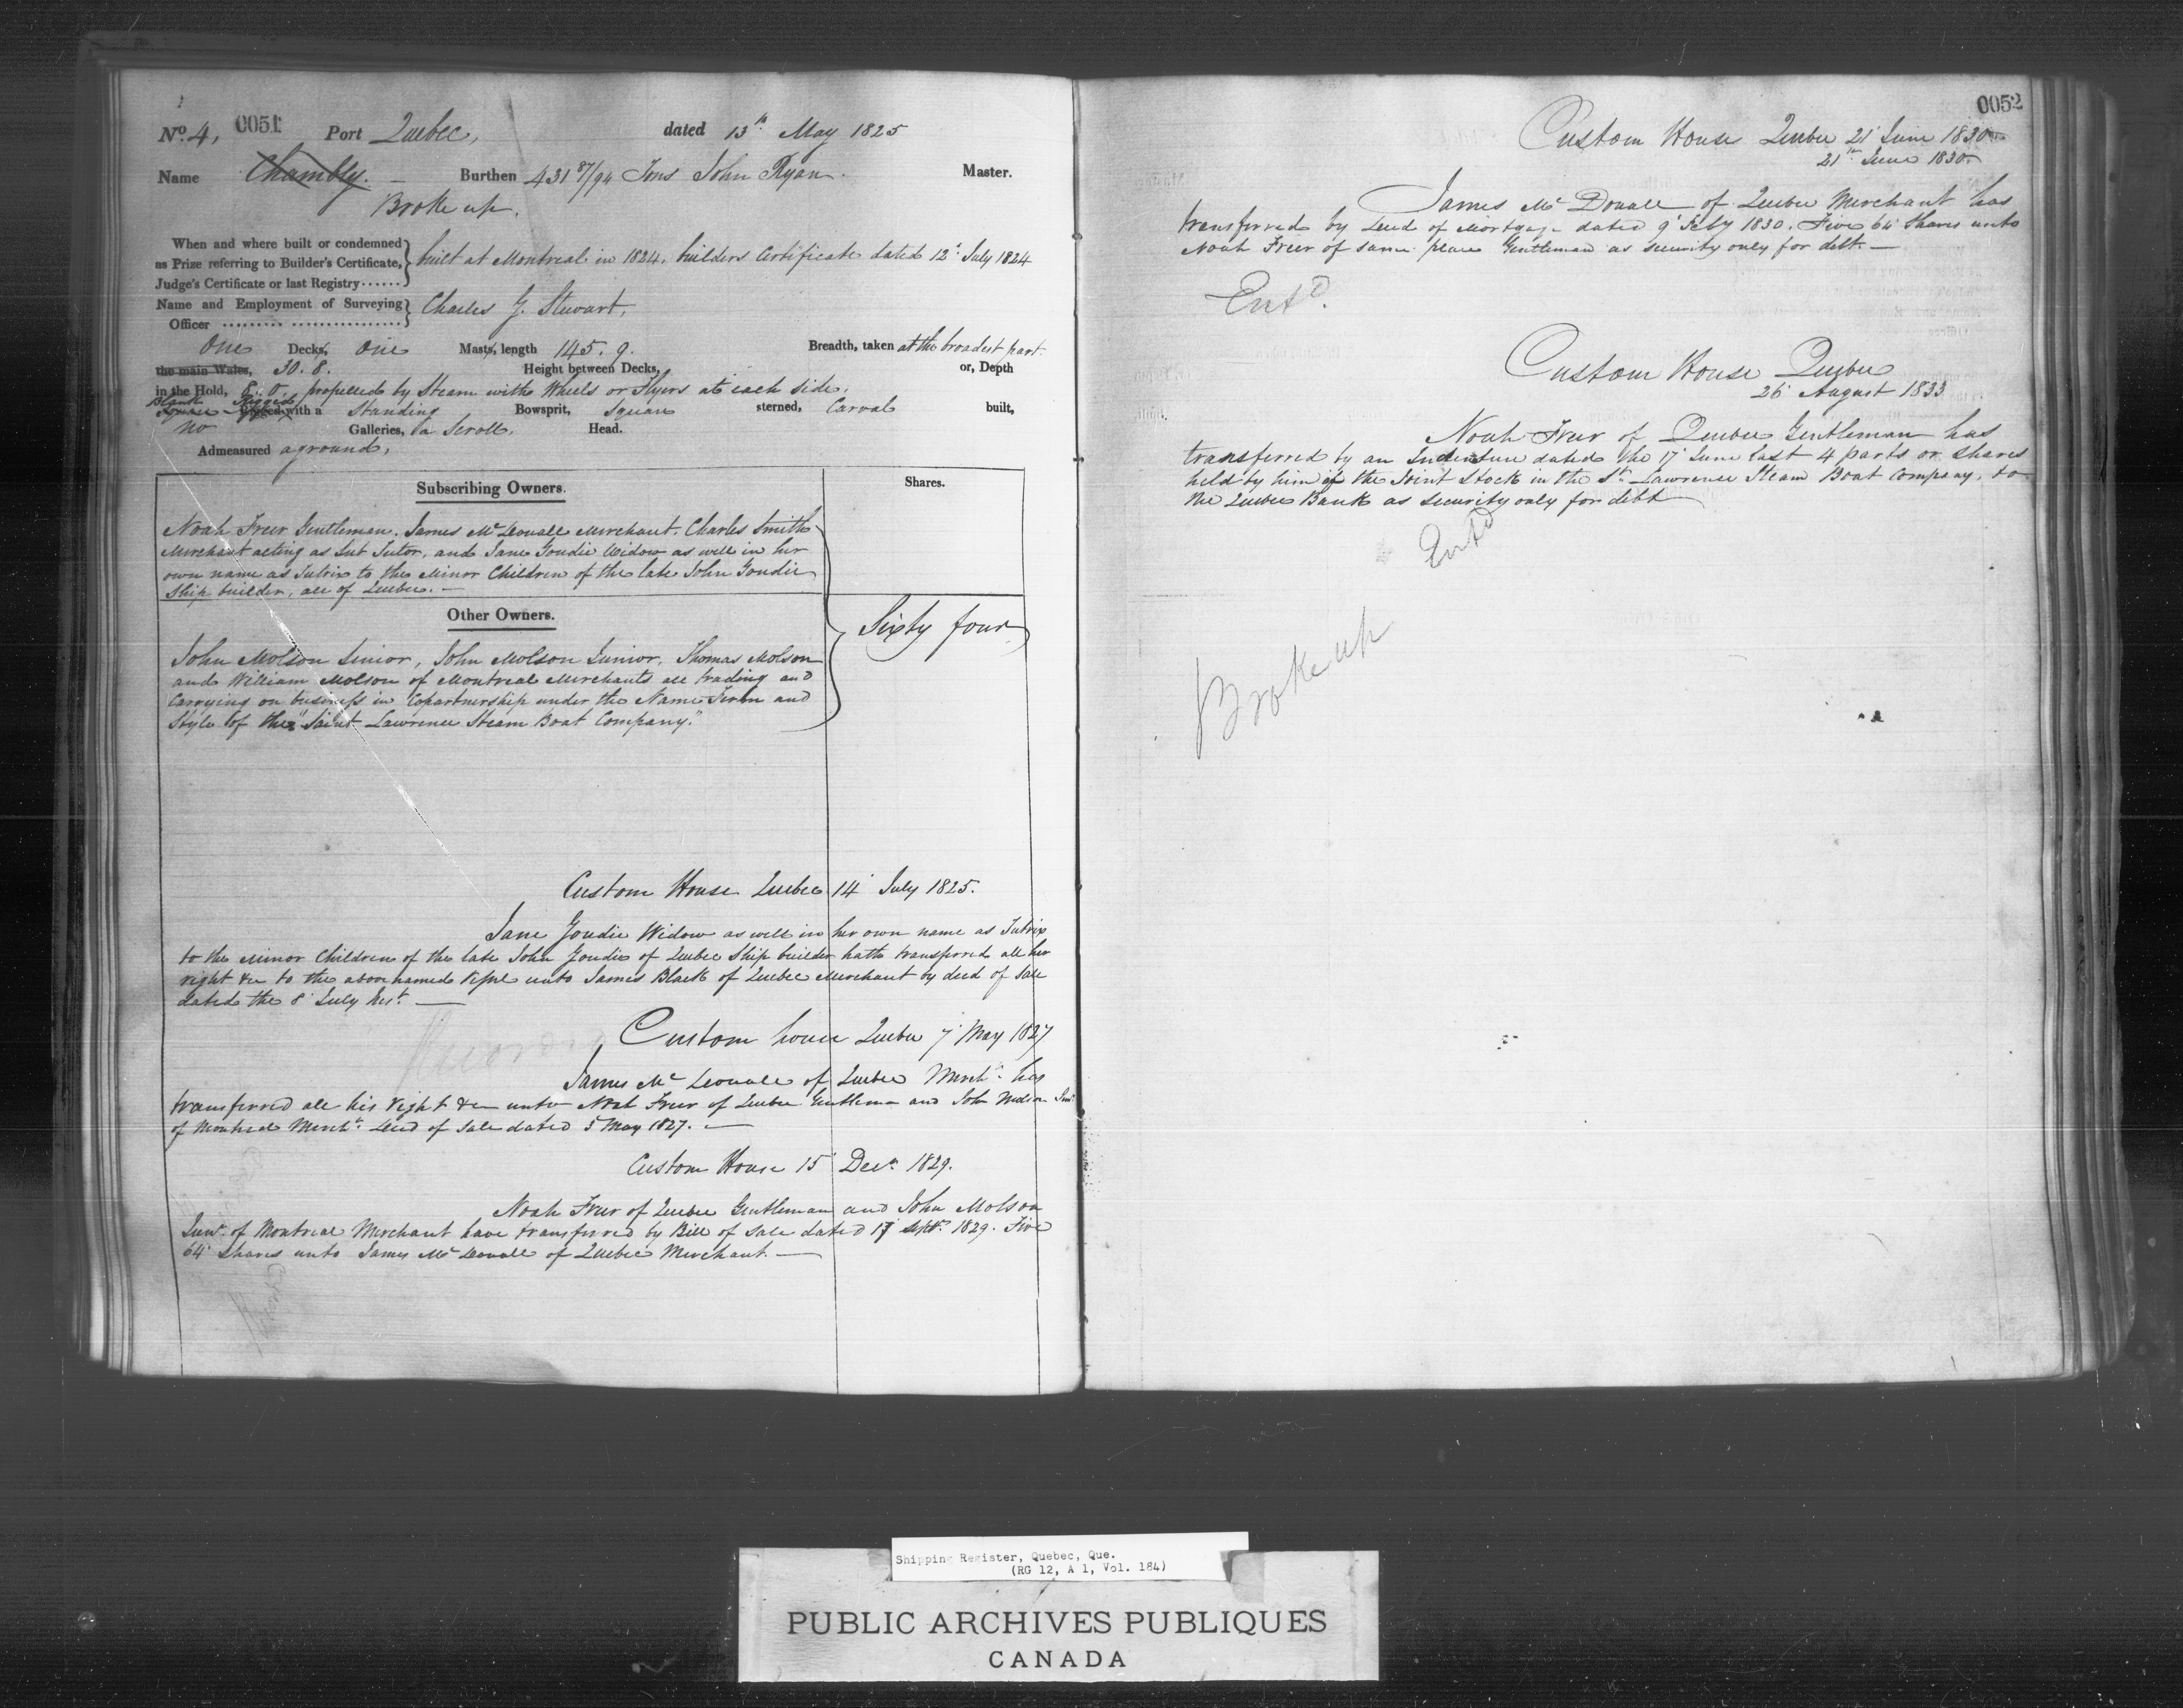 No. 4, 0051 Port Quebec, dated 13th May 1825
Name Chambly. — Burthen 431 87/94 Tons John Ryan. Master.
Broke up.
When and where built or condemned
as Prize referring to Builder's Certificate, built at Montreal in 1824. builders Certificate dated 12th July 1824
Judge's Certificate or last Registry......
Name and Employment of Surveying Charles G. Stewart.
Officer
One Decks, One Masts, length 145. 9. Breadth, taken at the broadest part.
the main Wales, 30. 8. Height between Decks, or, Depth
in the Hold, 8. 0. propelled by Steam with Wheels or Flyers at each side.
Rigged with a Standing Bowsprit, Square sterned, Carval built,
No Galleries, a Scroll. Head.
Admeasured aground.
Subscribing Owners. Shares.
Noah Freer Gentleman, James Mc Douall Merchant, Charles Smith
Merchant acting as Sub Tutor, and Jane Goudie Widow as well in her
own name as Tutrix to the Minor Children of the late John Goudie
Ship builder, all of Quebec. —
Other Owners.
Sixty four
John Molson Senior, John Molson Junior, Thomas Molson
and William Molson of Montreal Merchants all trading and
Carrying on business in Copartnership under the Name Firm and
Style of the "Saint Lawrence Steam Boat Company."
Custom House Quebec 14 July 1825.
Jane Goudie Widow as well in her own name as Tutrix
to the Minor Children of the late John Goudie of Quebec Ship builder hath transferred all her
right &c to the above named Vessel unto James Black of Quebec Merchant by deed of Sale
dated the 8 July Inst. —
Custom house Quebec 7 May 1827
James Mc Douall of Quebec Mercht. has
transferred all his right &c unto Noah Freer of Quebec Gentleman and John Molson Junr
of Montreal Mercht. Deed of Sale dated 5 May 1827. —
Custom House 15 Decr. 1829.
Noah Freer of Quebec Gentleman and John Molson
Junr. of Montreal Merchant have transferred by Bill of Sale dated 17 Septr. 1829. Five
64 Shares unto James Mc Douall of Quebec Merchant. —
0052
Custom House Quebec 21 June 1830
21st June 1830
James Mc Douall of Quebec Merchant has
transferred by Deed of Mortgage dated 9 Feby 1830. Five 64 Shares unto
Noah Freer of same place Gentleman as security only for debt. —
Entd.
Custom House Quebec
26 August 1833
Noah Freer of Quebec Gentleman has
transferred by an Indenture dated the 17 June last 4 parts or shares
held by him in the Joint Stock in the St. Lawrence Steam Boat Company, to
the Quebec Bank as security only for debt
Entd
Broke up
Shipping Register, Quebec, Que.
(RG 12, A 1, Vol. 184)
PUBLIC ARCHIVES PUBLIQUES
CANADA